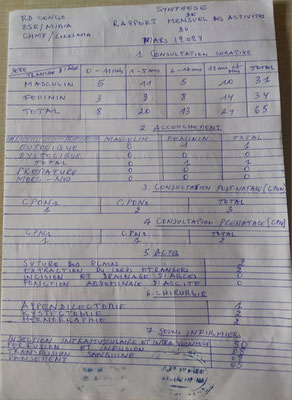 RD CONGO SYNTHESE
ZSR/MURIA DE
RAPPORT MENSUEL DES ACTIVITES
DU
MARS 2024
1. CONSULTATION CURATIVE
SEXE TRANCHE D'AGE 0-11 MOIS 1-5 ANS TOTAL
MASCULIN 5 11 5 10 31
FEMININ 3 9 8 14 34
TOTAL 8 20 13 24 65
2. ACCOUCHEMENT
MASCULIN FEMININ TOTAL
EUTOCIQUE 0 1 1
DYSTOCIQUE 0 0 0
TOTAL 0 1 1
PREMATURE 0 0 0
MORT-NE 0 0 0
3. CONSULTATION POSTNATALE (CPON)
CPON1 CPON2 TOTAL
1 2 3
4. CONSULTATION PRENATALE (CPN)
CPN1 CPN2 TOTAL
1 1 2
5. ACTES
SUTURE DES PLAIES
EXTRACTION DU CORPS ETRANGER
INCISION ET DRAINAGE D'ABCES
PONCTION ABDOMINALE D'ASCITE
6. CHIRURGIE
APPENDICECTOMIE
KYSTECTOMIE
HERNORRAPHIE
7. SOINS INFIRMIERS
INJECTION INTRAMUSCULAIRE ET INTRAVEINEUSE
PERFUSION ET INFUSION
TRANSFUSION SANGUINE
PANSEMENT